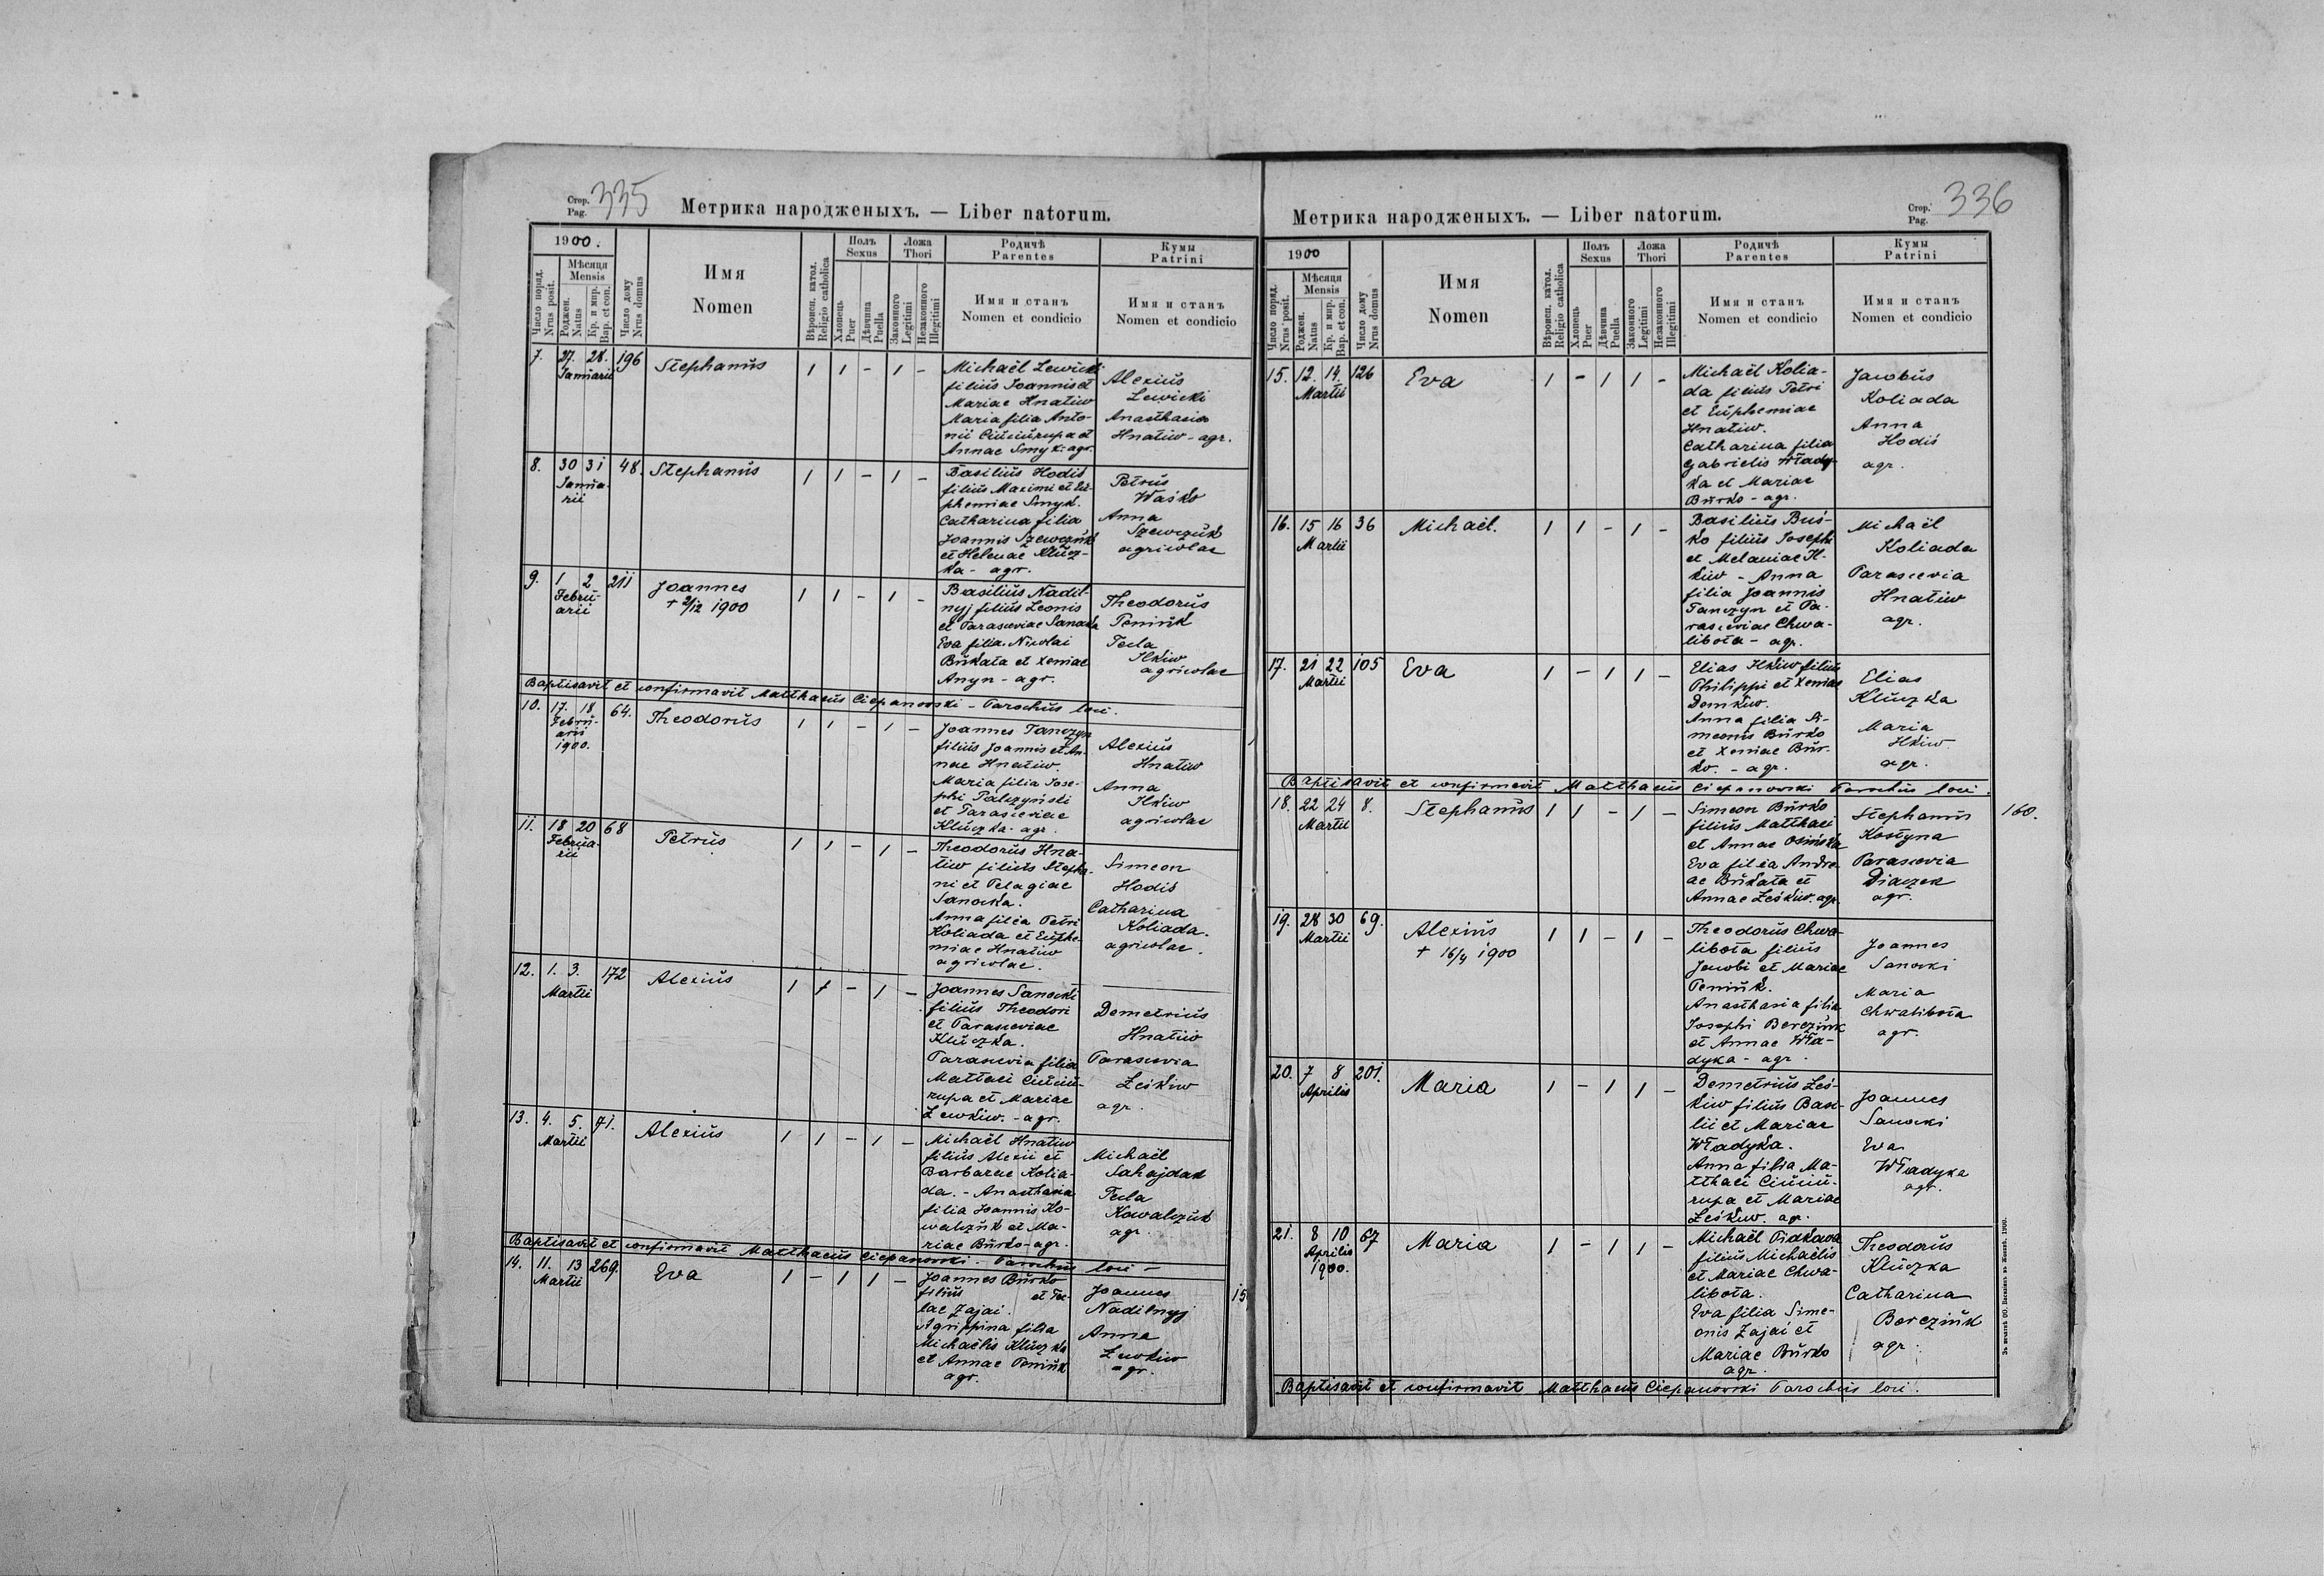 Стор.
Pag. 335
Метрика народженыхъ. — Liber natorum.
1900.
Число поряд.
Nrus posit.
Мѣсяця
Mensis
Роджен.
Natus
Кр. и мир.
Bap. et con.
Число дому
Nrus domus
Имя
Nomen
Вѣроисп. катол.
Religio catholica
Полъ
Sexus
Хлопець
Puer
Дѣвчина
Puella
Ложа
Thori
Законного
Legitimi
Незаконного
Illegitimi
Родичѣ
Parentes
Имя и станъ
Nomen et condicio
Кумы
Patrini
Имя и станъ
Nomen et condicio
7. 27. 28. 196 Stephanus 1 1 - 1 -
Januarii
Michaël Lewicki
filius Joannis et
Mariae Hnatiw
Maria filia Anto-
nii Ciuciurupa et
Annae Smyk. agr.
Alexius
Lewicki
Anasthasia
Hnatiw - agr.
8. 30 31 48. Stephanus 1 1 - 1 -
Janua-
rii
Basilius Hodis
filius Maximi et Eu-
phemiae Smyk.
Catharina filia
Joannis Szewczuk
et Helenae Klucz-
ka - agr.
Petrus
Waśko
Anna
Szewczuk
agricolae
9. 1 2 211 Joannes 1 1 - 1 -
Febru-
arii
+ 2/12 1900
Basilius Nadil-
nyj filius Leonis
et Parasceviae Sanocka
Eva filia Nicolai
Bukata et Xeniae
Anyn - agr.
Theodorus
Peniuk
Tecla
Ilkiw
agricolae
Baptisavit et confirmavit Matthaeus Ciepanowski - Parochus loci.
10. 17. 18. 64. Theodorus 1 1 - 1 -
Febru-
arii
1900.
Joannes Tanczyn
filius Joannis et An-
nae Hnatiw.
Maria filia Jose-
phi Palczyński
et Parasceviae
Kluczka - agr.
Alexius
Hnatiw
Anna
Ilkiw
agricolae
11. 18 20 68 Petrus 1 1 - 1 -
Februa-
rii
Theodorus Hna-
tiw filius Stepha-
ni et Pelagiae
Sanocka.
Anna filia Petri
Koliada et Euphe-
miae Hnatiw
agricolae.
Simeon
Hodis
Catharina
Koliada.
agricolae.
12. 1. 3. 172 Alexius 1 1 - 1 -
Martii
Joannes Sanocki
filius Theodori
et Parasceviae
Kluczka.
Parascevia filia
Mattaei Ciuciu-
rupa et Mariae
Lewkiw. - agr.
Demetrius
Hnatiw
Parascevia
Leśkiw
agr.
13. 4. 5. 71. Alexius 1 1 - 1 -
Martii
Michaël Hnatiw
filius Alexii et
Barbarae Kolia-
da. - Anasthasia
filia Joannis Ko-
walczuk et Ma-
riae Burko - agr.
Michaël
Sahajdak
Tecla
Kowalczuk
agr.
Baptisavit et confirmavit Matthaeus Ciepanowski. Parochus loci -
14. 11. 13 269. Eva 1 - 1 1 -
Martii
Joannes Burko
filius et Tec-
lae Zajai.
Agrippina filia
Michaëlis Kluczka
et Annae Peniuk
agr.
Joannes
Nadilnyj
Anna
Lewkiw
agr.
15
Метрика народженыхъ. — Liber natorum.
Стор.
Pag. 336
1900
Число поряд.
Nrus posit.
Мѣсяця
Mensis
Роджен.
Natus
Кр. и мир.
Bap. et con.
Число дому
Nrus domus
Имя
Nomen
Вѣроисп. катол.
Religio catholica
Полъ
Sexus
Хлопець
Puer
Дѣвчина
Puella
Ложа
Thori
Законного
Legitimi
Незаконного
Illegitimi
Родичѣ
Parentes
Имя и станъ
Nomen et condicio
Кумы
Patrini
Имя и станъ
Nomen et condicio
15. 12. 14. 126 Eva 1 - 1 1 -
Martii
Michaël Kolia-
da filius Petri
et Euphemiae
Hnatiw.
Catharina filia
Gabrielis Włady-
ka et Mariae
Burko - agr.
Jacobus
Koliada
Anna
Hodis
agr.
16. 15 16 36 Michaël. 1 1 - 1 -
Martii
Basilius Buś-
ko filius Josephi
et Melaniae Il-
kiw - Anna
filia Joannis
Tanczyn et Pa-
rasceviae Chwa-
libota - agr.
Michaël
Koliada
Parascevia
Hnatiw
agr.
17. 21 22 105 Eva 1 - 1 1 -
Martii
Elias Ilkiw filius
Philippi et Xeniae
Domkiw.
Anna filia Si-
meonis Burko
et Xeniae Bur-
ko. - agr.
Elias
Kluczka
Maria
Ilkiw.
agr.
Baptisavit et confirmavit Matthaeus Ciepanowski Parochus loci.
18. 22 24 8. Stephanus 1 1 - 1 -
Martii
Simeon Burko
filius Matthaei
et Annae Osińska
Eva filia Andre-
ae Bukata et
Annae Leśkiw. agr.
Stephanus
Kostyna
Parascevia
Diaczek
agr.
160.
19. 28 30 69. Alexius 1 1 - 1 -
Martii
+ 16/4 1900
Theodorus Chwa-
libota filius
Jacobi et Mariae
Peniuk.
Anasthasia filia
Josephi Bereziuk
et Annae Wła-
dyka - agr.
Joannes
Sanocki
Maria
Chwalibota
agr.
20. 7 8 201. Maria 1 - 1 1 -
Aprilis
Demetrius Leś-
kiw filius Basi-
lii et Mariae
Władyka.
Anna filia Ma-
tthaei Ciuciu-
rupa et Mariae
Leśkiw. agr.
Joannes
Sanocki
Eva
Władyka
agr.
21. 8 10 67 Maria 1 - 1 1 -
Aprilis
1900.
Michaël
filius Michaëlis
et Mariae Chwa-
libota.
Eva filia Sime-
onis Zajai et
Mariae Burko
agr.
Theodorus
Kluczka
Catharina
Bereziuk
agr.
Baptisavit et confirmavit Matthaeus Ciepanowski Parochus loci.